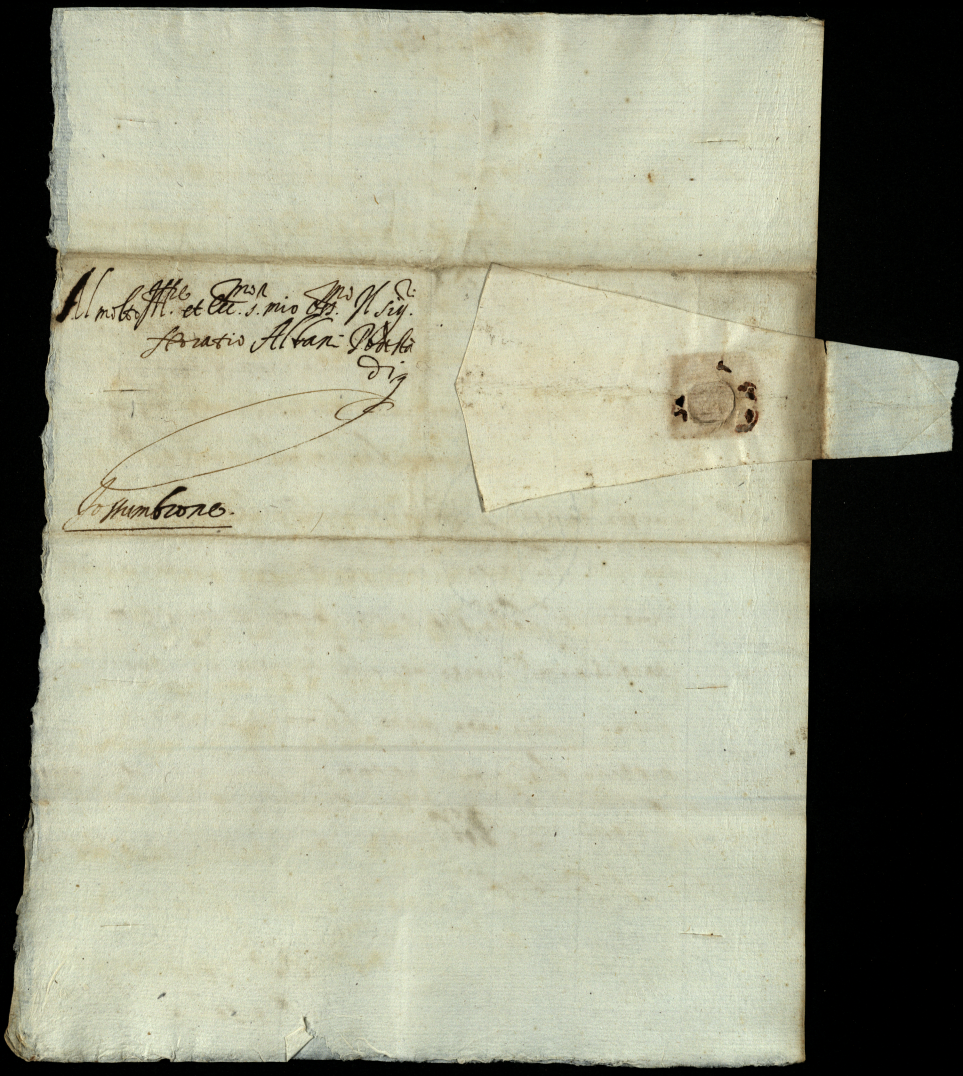 Al molto Ill.re et Ecc. s. mio oss.mo Il sig.r
Horatio Albani Podestà
di
Fossumbrone.